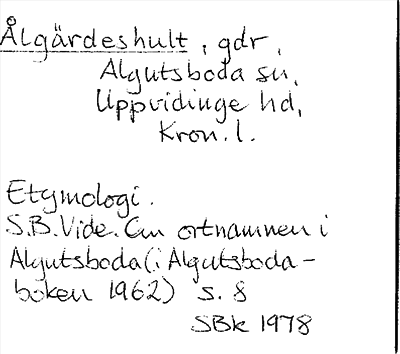 Ålgärdeshult, gdr,
Algutsboda sn,
Uppvidinge hd,
Kron. l.
Etymologi.
S.B.Vide. Om ortnamnen i
Algutsboda (i Algutsboda-
boken 1962) s. 8
SBk 1978